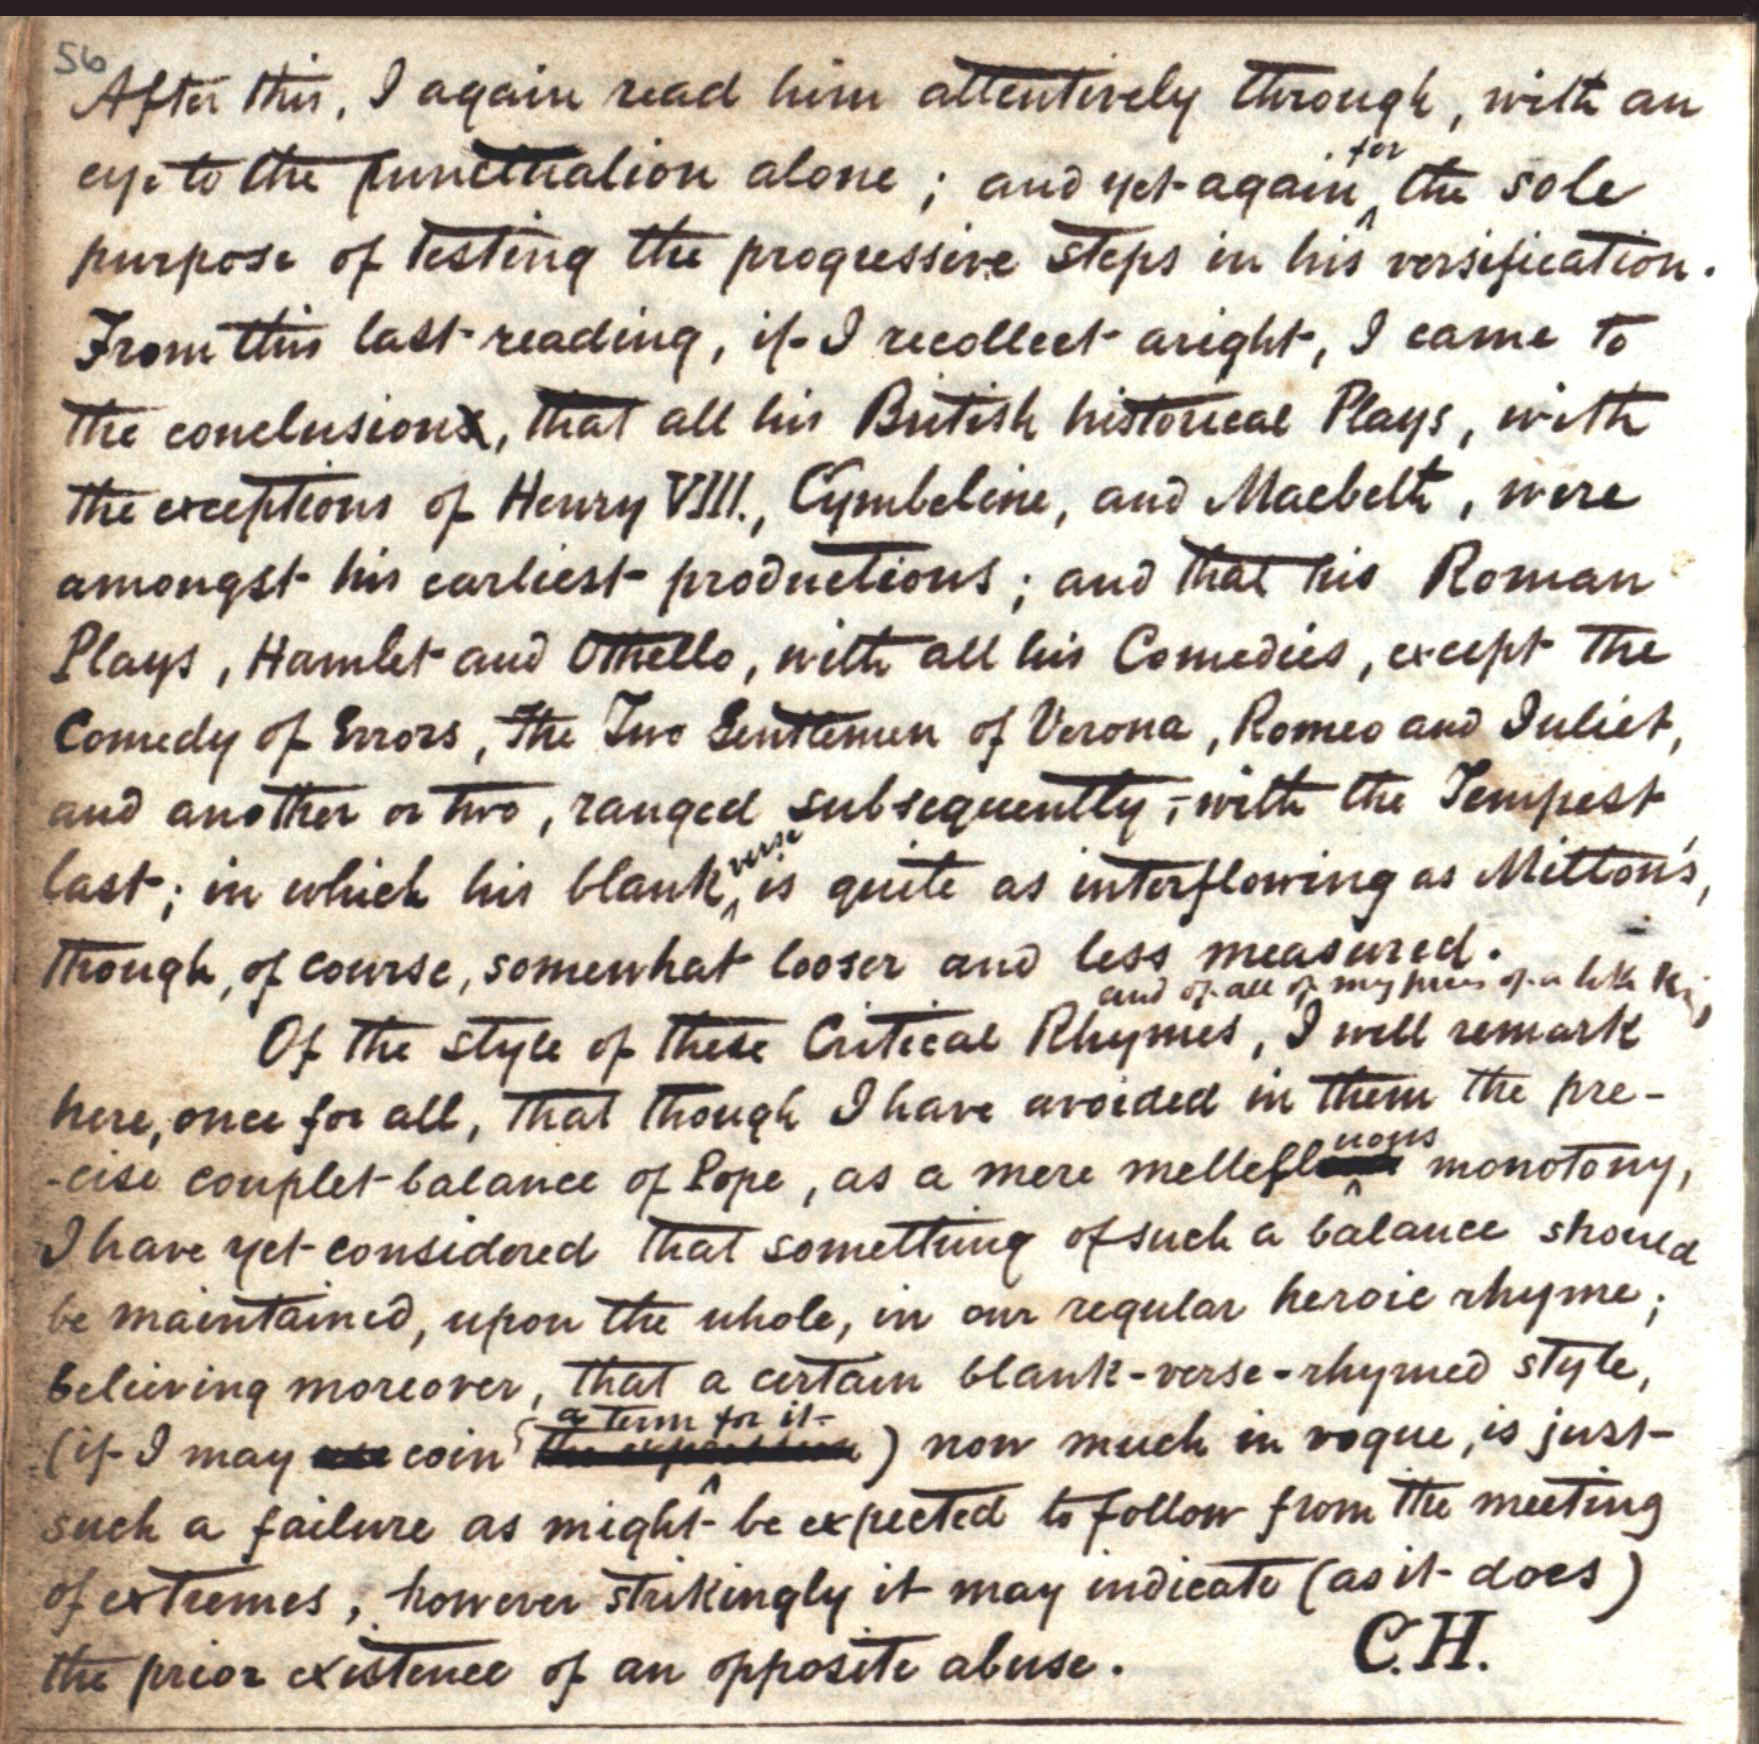 56
After this, I again read him attentively through, with an
eye to the punctuation alone; and yet again for the sole
purpose of testing the progressive steps in his versification.
From this last reading, if I recollect aright, I came to
the conclusion, that all his British historical Plays, with
the exceptions of Henry VIII., Cymbeline, and Macbeth, were
amongst his earliest productions; and that his Roman
Plays, Hamlet and Othello, with all his Comedies, except the
Comedy of Errors, The Two Gentlemen of Verona, Romeo and Juliet,
and another or two, ranged subsequently;—with the Tempest
last; in which his blank verse is quite as interflowing as Milton's,
though, of course, somewhat looser and less measured.
and of all of my pieces of a like
Of the style of these Critical Rhymes, I will remark
here, once for all, that though I have avoided in them the pre-
-cise couplet-balance of Pope, as a mere mellefluous monotony,
I have yet considered that something of such a balance should
be maintained, upon the whole, in our regular heroic rhyme;
believing moreover, that a certain blank-verse-rhymed style,
(if I may coin a term for it) now much in vogue, is just
such a failure as might be expected to follow from the meeting
of extremes, however strikingly it may indicate (as it does)
the prior existence of an opposite abuse. C.H.